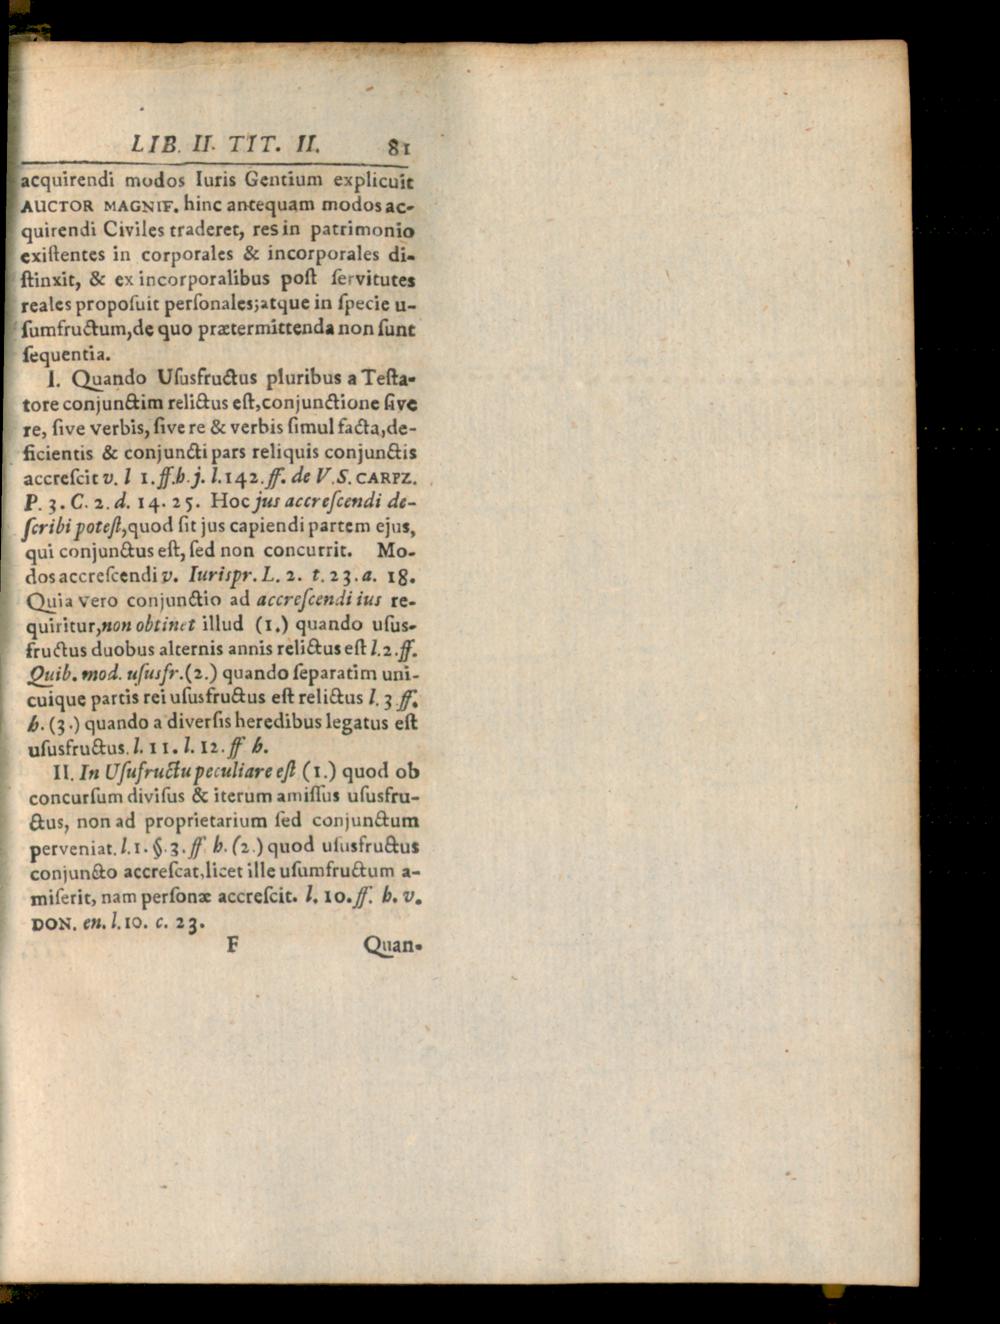 LIB. II. TIT. II. 81
acquirendi modos Iuris Gentium explicuit
AUCTOR MAGNIF. hinc antequam modos ac-
quirendi Civiles traderet, res in patrimonio
exiſtentes in corporales & incorporales di-
ſtinxit, & ex incorporalibus poſt ſervitutes
reales propoſuit perſonales; atque in ſpecie u-
ſumfructum, de quo prætermittenda non ſunt
ſequentia.
I. Quando Uſusfructus pluribus a Teſta-
tore conjunctim relictus eſt, conjunctione ſive
re, ſive verbis, ſive re & verbis ſimul facta, de-
ficientis & conjuncti pars reliquis conjunctis
accreſcit v. l 1. ff. h. j. l. 142. ff. de V. S. CARPZ.
P. 3. C. 2. d. 14. 25. Hoc jus accreſcendi de-
ſcribi poteſt, quod ſit jus capiendi partem ejus,
qui conjunctus eſt, ſed non concurrit. Mo-
dos accreſcendi v. Iurispr. L. 2. t. 23. a. 18.
Quia vero conjunctio ad accreſcendi ius re-
quiritur, non obtinet illud (1.) quando uſus-
fructus duobus alternis annis relictus eſt l. 2. ff.
Quib. mod. uſusfr. (2.) quando ſeparatim uni-
cuique partis rei uſusfructus eſt relictus l. 3 ff.
h. (3.) quando a diverſis heredibus legatus eſt
uſusfructus. l. 11. l. 12. ff h.
II. In Uſufructu peculiare eſt (1.) quod ob
concurſum diviſus & iterum amiſſus uſusfru-
ctus, non ad proprietarium ſed conjunctum
perveniat. l. 1. §. 3. ff h. (2.) quod uſusfructus
conjuncto accreſcat, licet ille uſumfructum a-
miſerit, nam perſonæ accreſcit. l. 10. ff. h. v.
DON. en. l. 10. c. 23.
F Quan-